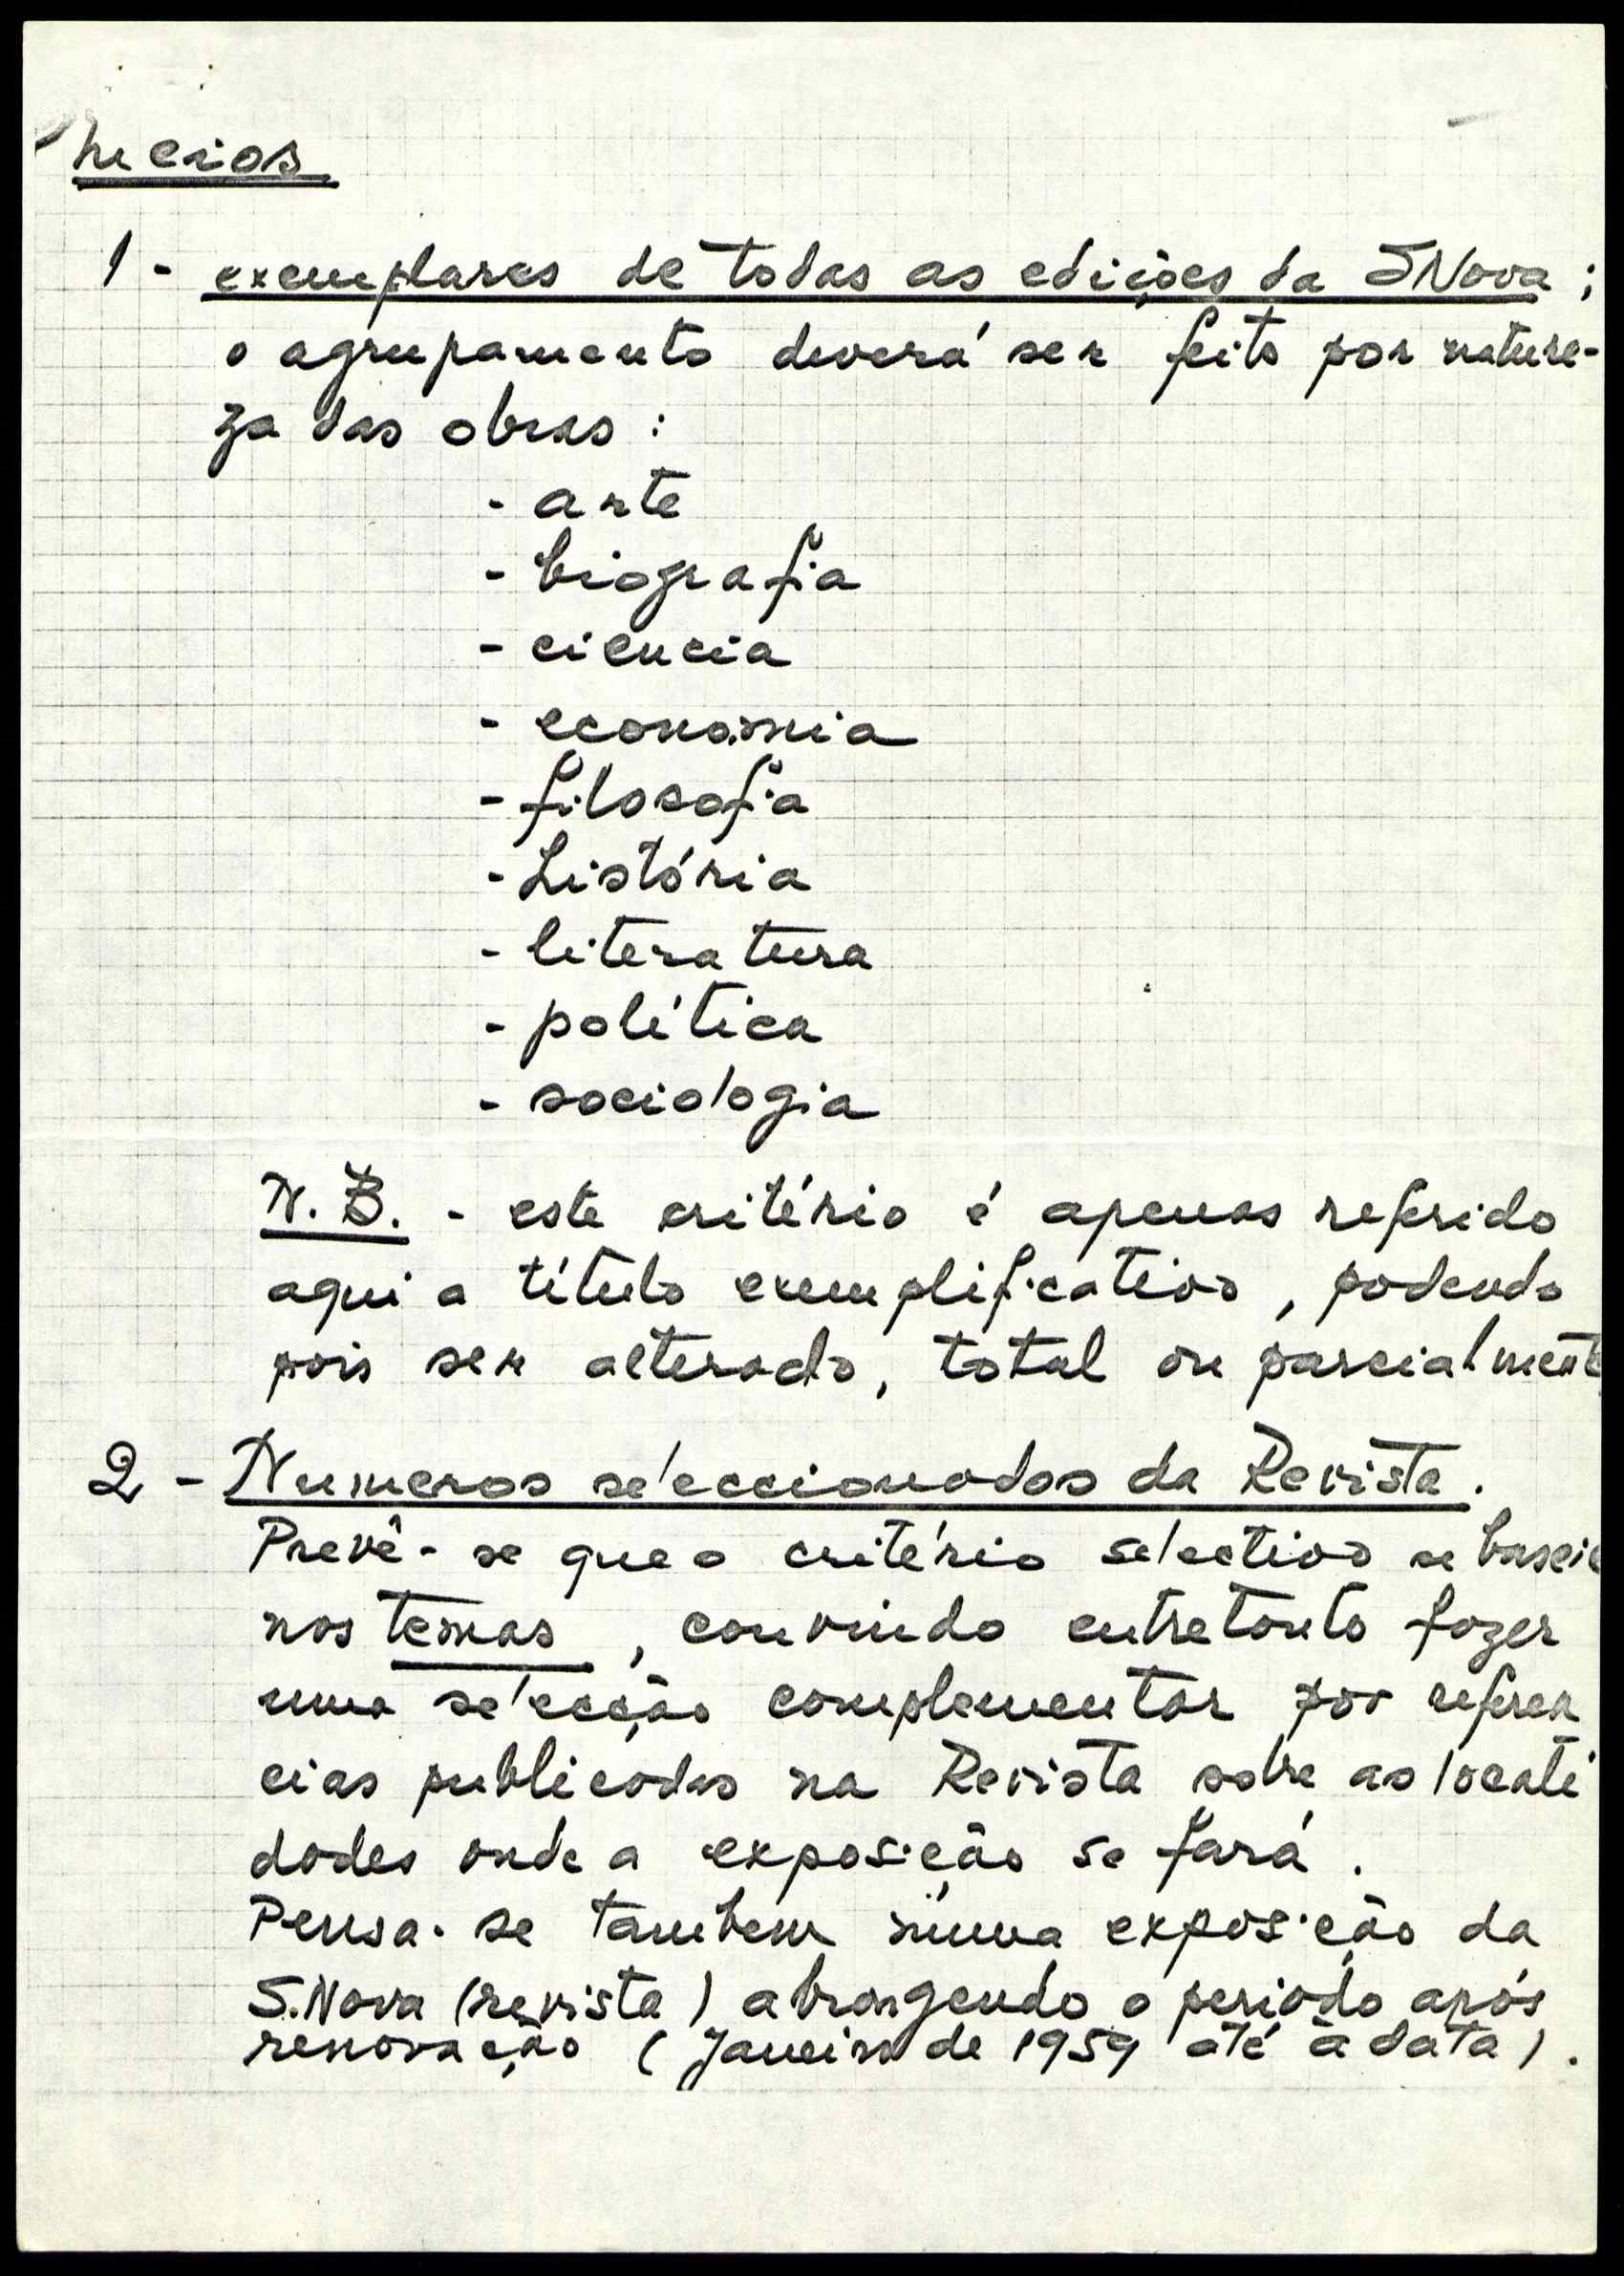 meios
1 - exemplares de todas as edições da SNova ;
o agrupamento deverá ser feito por nature-
za das obras :
- arte
- biografia
- ciencia
- economia
- filosofia
- história
- literatura
- política
- sociologia
N. B. - este critério é apenas referido
aqui a título exemplificativo , podendo
pois ser alterado, total ou parcialment
2 - Numeros seleccionados da Revista .
Prevê-se que o critério selectivo se baseie
nos temas , convindo entretanto fazer
uma selecção complementar por referen
cias publicadas na Revista sobre as locali
dades onde a exposição se fará .
Pensa-se tambem numa exposição da
S.Nova (revista) abrangendo o periodo após
renovação ( Janeiro de 1959 até à data ) .